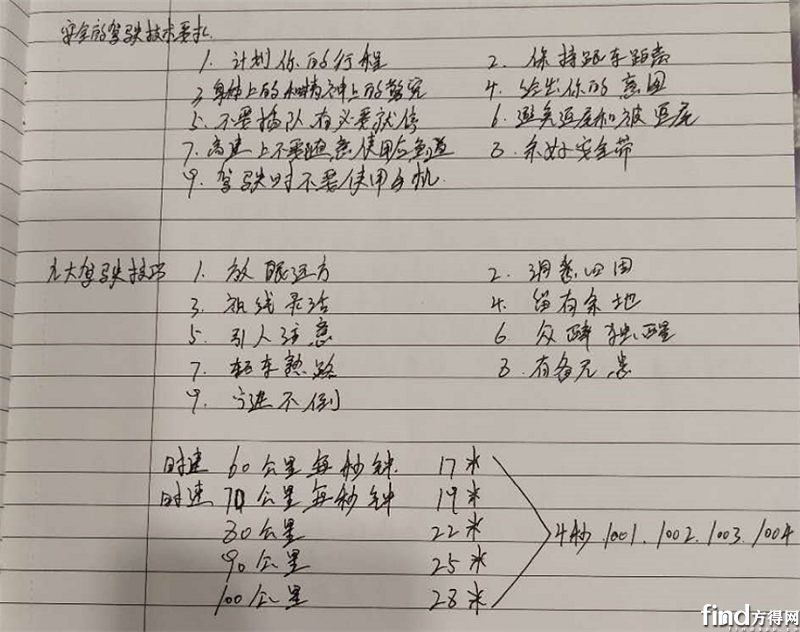 安全的驾驶技术要求
1. 计划你的行程 2. 保持跟车距离
3. 身体上的和精神上的 4. 给出你的意图
5. 不要插队有必要就停 6. 避免追尾和被追尾
7. 高速上不要随意使用应急道 8. 系好安全带
9. 驾驶时不要使用手机
九大驾驶技巧 1. 放眼远方 2. 洞悉四周
3. 视线灵活 4. 留有余地
5. 引人注意 6. 众醉独醒
7. 轻车熟路 8. 有备无患
9. 宁进不倒
时速 60公里每秒钟 17米
时速 70公里每秒钟 19米
80公里 22米
90公里 25米
100公里 28米
4秒 1001. 1002. 1003. 1004
find方得网